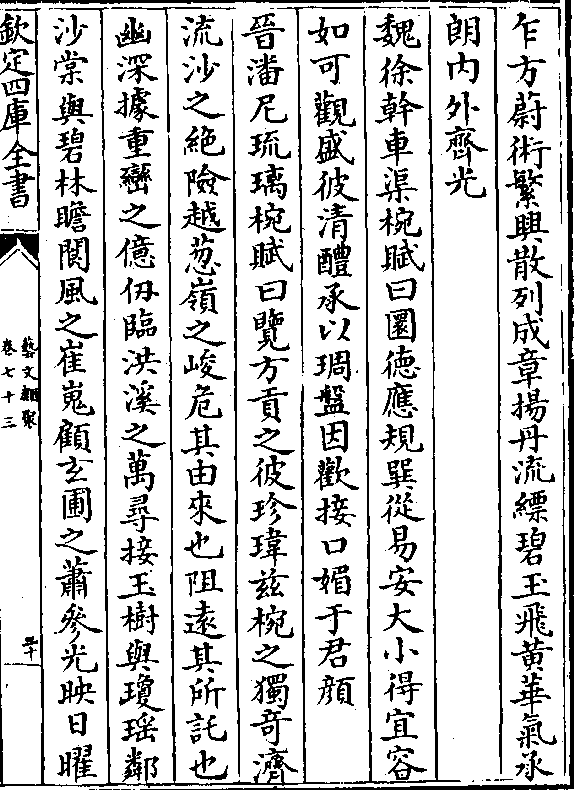 乍方蔚術繁興散列成章揚丹流縹碧玉飛黄華氣承
朗内外齊光
魏徐幹車渠椀賦曰圜德應規巽從易安大小得宜容
如可觀盛彼清醴承以琱盤因歡接口媚于君顔
晉潘尼琉璃椀賦曰覽方貢之彼珍瑋兹椀之獨竒濟
流沙之絶險越葱嶺之峻危其由來也阻遠其所託也
幽深據重巒之億仭臨洪溪之萬尋接玉樹與瓊瑶鄰
沙棠與碧林瞻閬風之崔嵬顧玄圃之蕭參光映日曜
欽定四庫全書
藝文類聚
卷七十三
二十